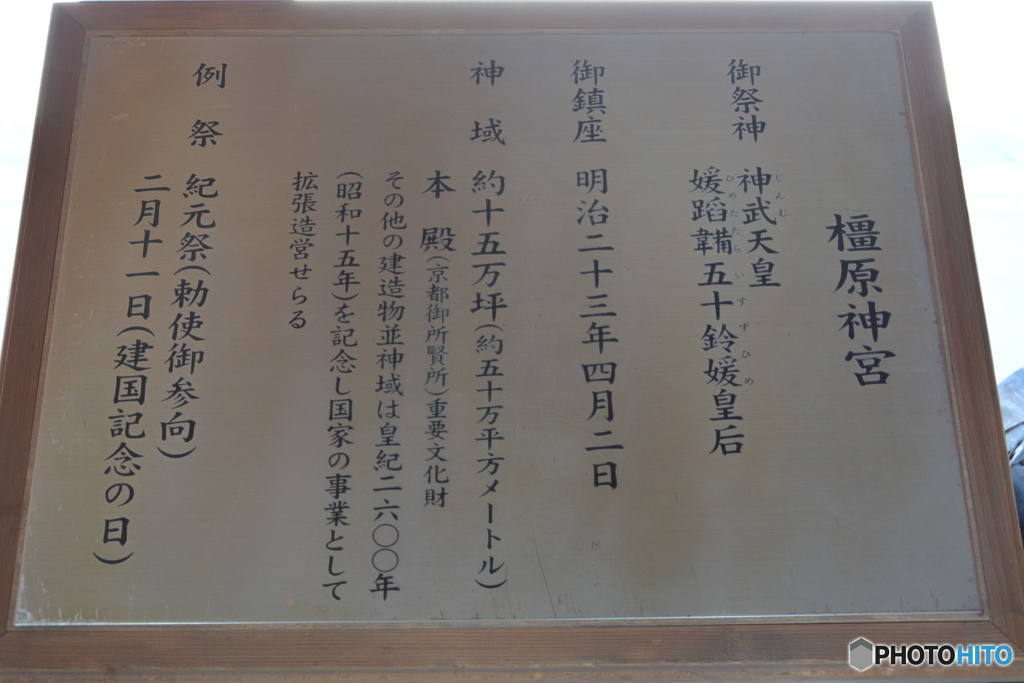 橿原神宮
御祭神 神武天皇
じんむ
媛蹈韛五十鈴媛皇后
ひめたたらいすずひめ
御鎮座 明治二十三年四月二日
神域 約十五万坪(約五十万平方メートル)
本殿(京都御所賢所)重要文化財
その他の建造物並神域は皇紀二六〇〇年
(昭和十五年)を記念し国家の事業として
拡張造営せらる
例祭 紀元祭(勅使御参向)
二月十一日(建国記念の日)
PHOTOHITO